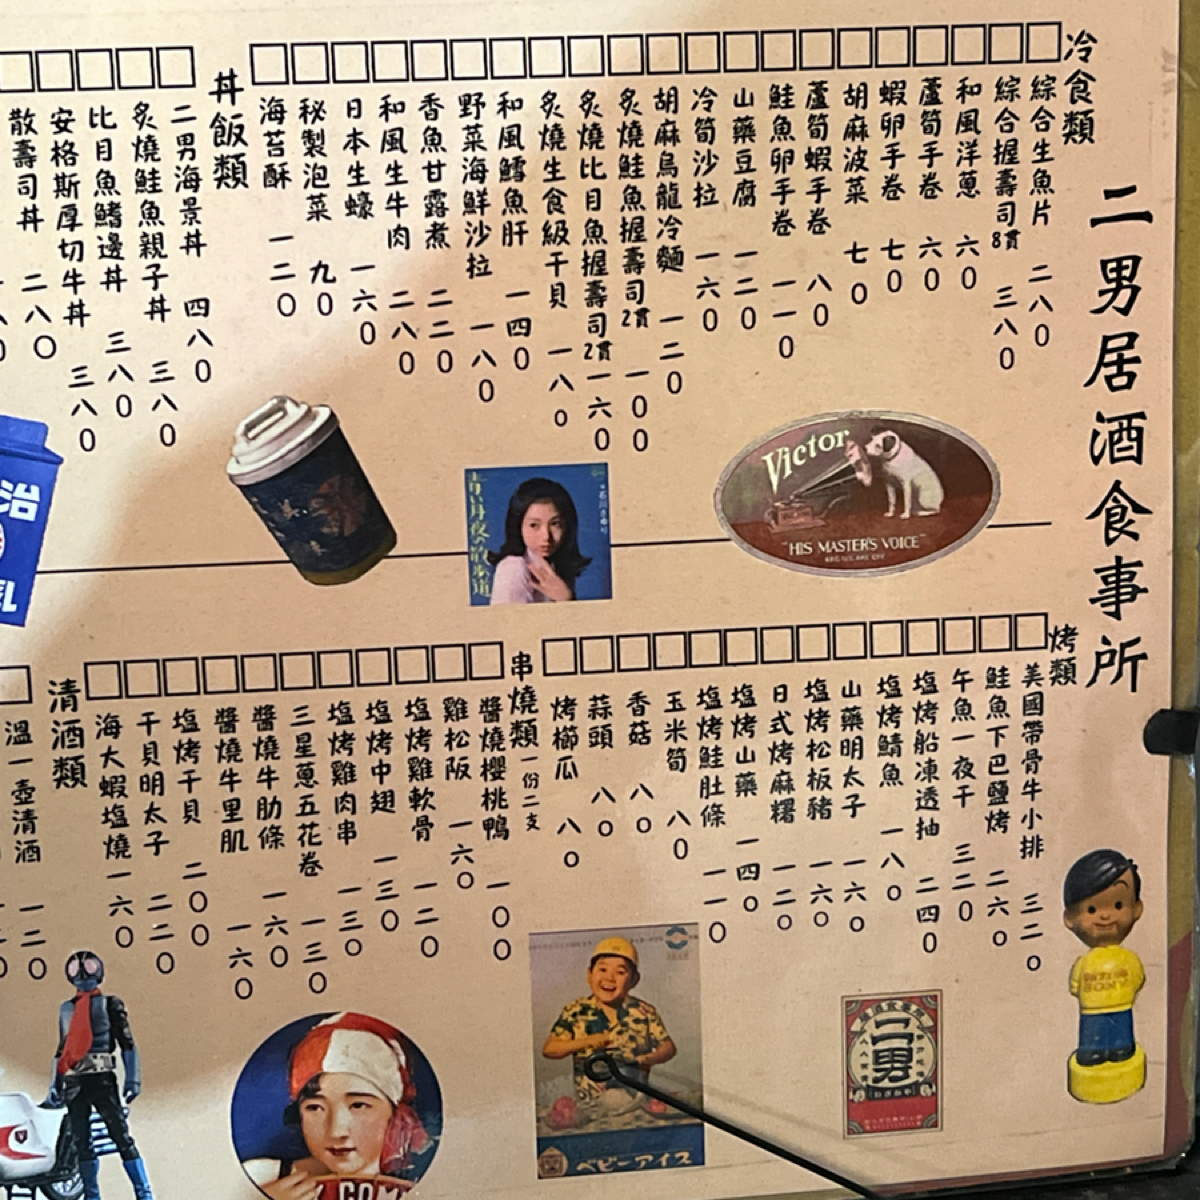 二男居酒食事所
冷食類
綜合生魚片 二八〇
綜合握壽司8貫 三八〇
和風洋蔥 六〇
蘆筍手卷 六〇
蝦卵手卷 七〇
胡麻波菜 七〇
蘆筍蝦手卷 八〇
鮭魚卵手卷 一一〇
山藥豆腐 一二〇
冷筍沙拉 一六〇
胡麻烏龍冷麵 一二〇
炙燒鮭魚握壽司2貫 一〇〇
炙燒比目魚握壽司2貫 一六〇
炙燒生食級干貝 一八〇
和風鱈魚肝 一四〇
野菜海鮮沙拉 一八〇
香魚甘露煮 二二〇
和風生牛肉 二八〇
日本生蠔 一六〇
秘製泡菜 九〇
海苔酥 一二〇
丼飯類
二男海景丼 四八〇
炙燒鮭魚親子丼 三八〇
比目魚鰭邊丼 三八〇
安格斯厚切牛丼 三八〇
散壽司丼 二八〇
Victor
"HIS MASTER'S VOICE"
青い月夜の散歩道
治
乳
烤類
美國帶骨牛小排 三二〇
鮭魚下巴鹽烤 二六〇
午魚一夜干 三二〇
塩烤船凍透抽 二四〇
塩烤鯖魚 一八〇
山藥明太子 一六〇
塩烤松板豬 一六〇
日式烤麻糬 一二〇
塩烤山藥 一四〇
塩烤鮭肚條 一一〇
玉米筍 八〇
香菇 八〇
蒜頭 八〇
烤櫛瓜 八〇
串燒類一份二支
醬燒櫻桃鴨 一〇〇
雞松阪 一六〇
塩烤雞軟骨 一二〇
塩烤中翅 一三〇
塩烤雞肉串 一三〇
三星蔥五花卷 一三〇
醬燒牛肋條 一六〇
醬燒牛里肌 一六〇
塩烤干貝 二〇〇
干貝明太子 二二〇
海大蝦塩燒 一六〇
清酒類
溫一壺清酒 一二〇
二男
ベビーアイス